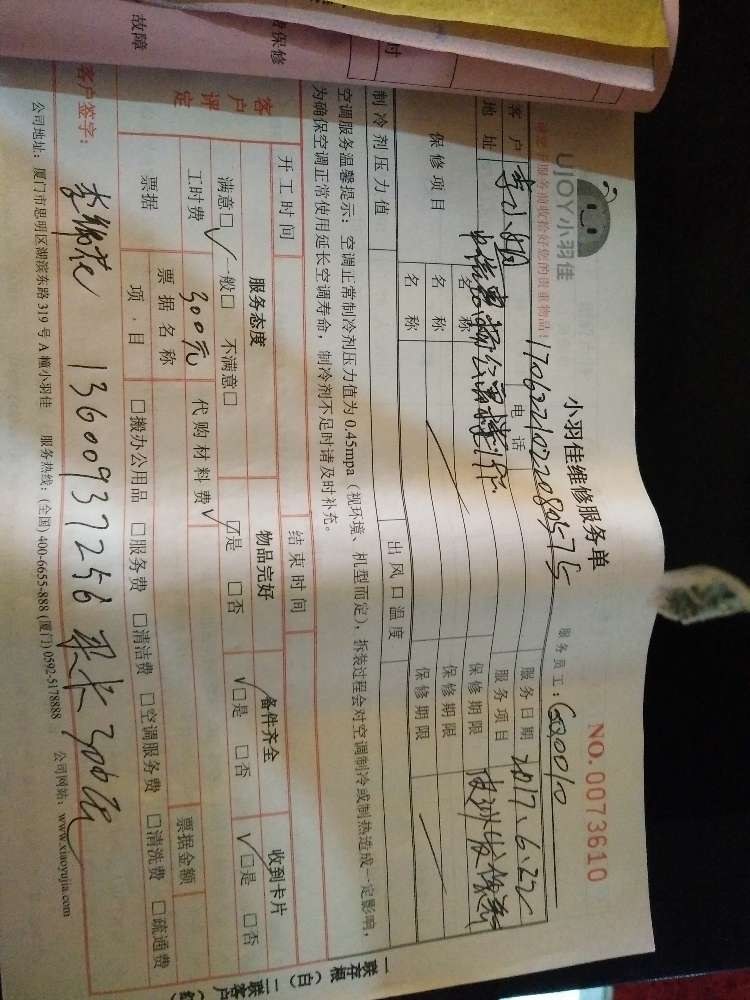 故障
保修
时
UJOY小羽佳
小羽佳维修服务单
NO.0073610
请您在服务前收拾好您的贵重物品!
17062210220805715
服务员工:
客户
电话
服务日期 2017.6.22
地址
服务项目
保修项目
名称
保修期限
名称
保修期限
名称
保修期限
制冷剂压力值
出风口温度
空调服务温馨提示:空调正常制冷剂压力值为0.45mpa(视环境、机型而定),拆装过程会对空调制冷或制热造成一定影响,
为确保空调正常使用延长空调寿命,制冷剂不足时请及时补充。
开工时间
结束时间
客户评定
服务态度
物品完好
备件齐全
收到卡片
满意□√ 一般□ 不满意□
☑是 □否
√□是 □否
√□是 □否
工时费
300元
代购材料费
票据
票据名称
票据金额
项目
□搬办公用品 □服务费 □清洁费 □空调服务费 □清洗费 □疏通费
客户签字:
13600937256
300元
公司地址:厦门市思明区湖滨东路319号A幢小羽佳 服务热线:(全国)400-6655-888 (厦门)0592-5178888 公司网站:www.xiaoyujia.com
一联存根(白)二联客户(红)